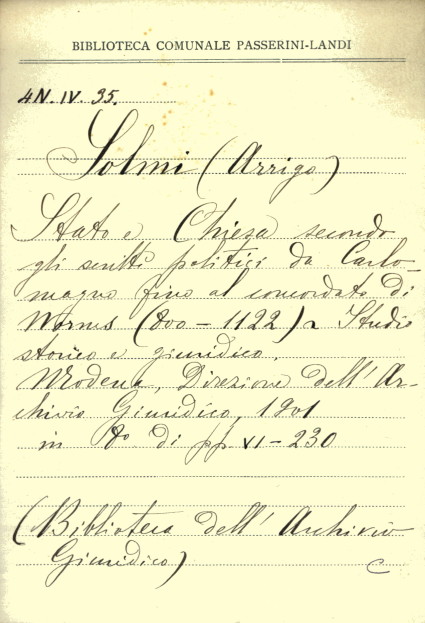 BIBLIOTECA COMUNALE PASSERINI-LANDI
4N.IV.35.
Solmi (Arrigo)
Stato e Chiesa secondo
gli scritti politici da Carlo-
magno fino al concordato di
Worms (800 - 1122) Studio
storico e giuridico.
Modena, Direzione dell'Ar-
chivio Giuridico, 1901
in 8º di pp VI - 230
(Biblioteca dell'Archivio
Giuridico)
C